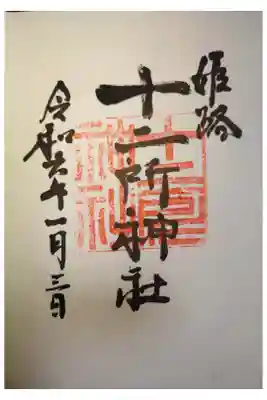 姫路
十二所神社
令和六年一月三日